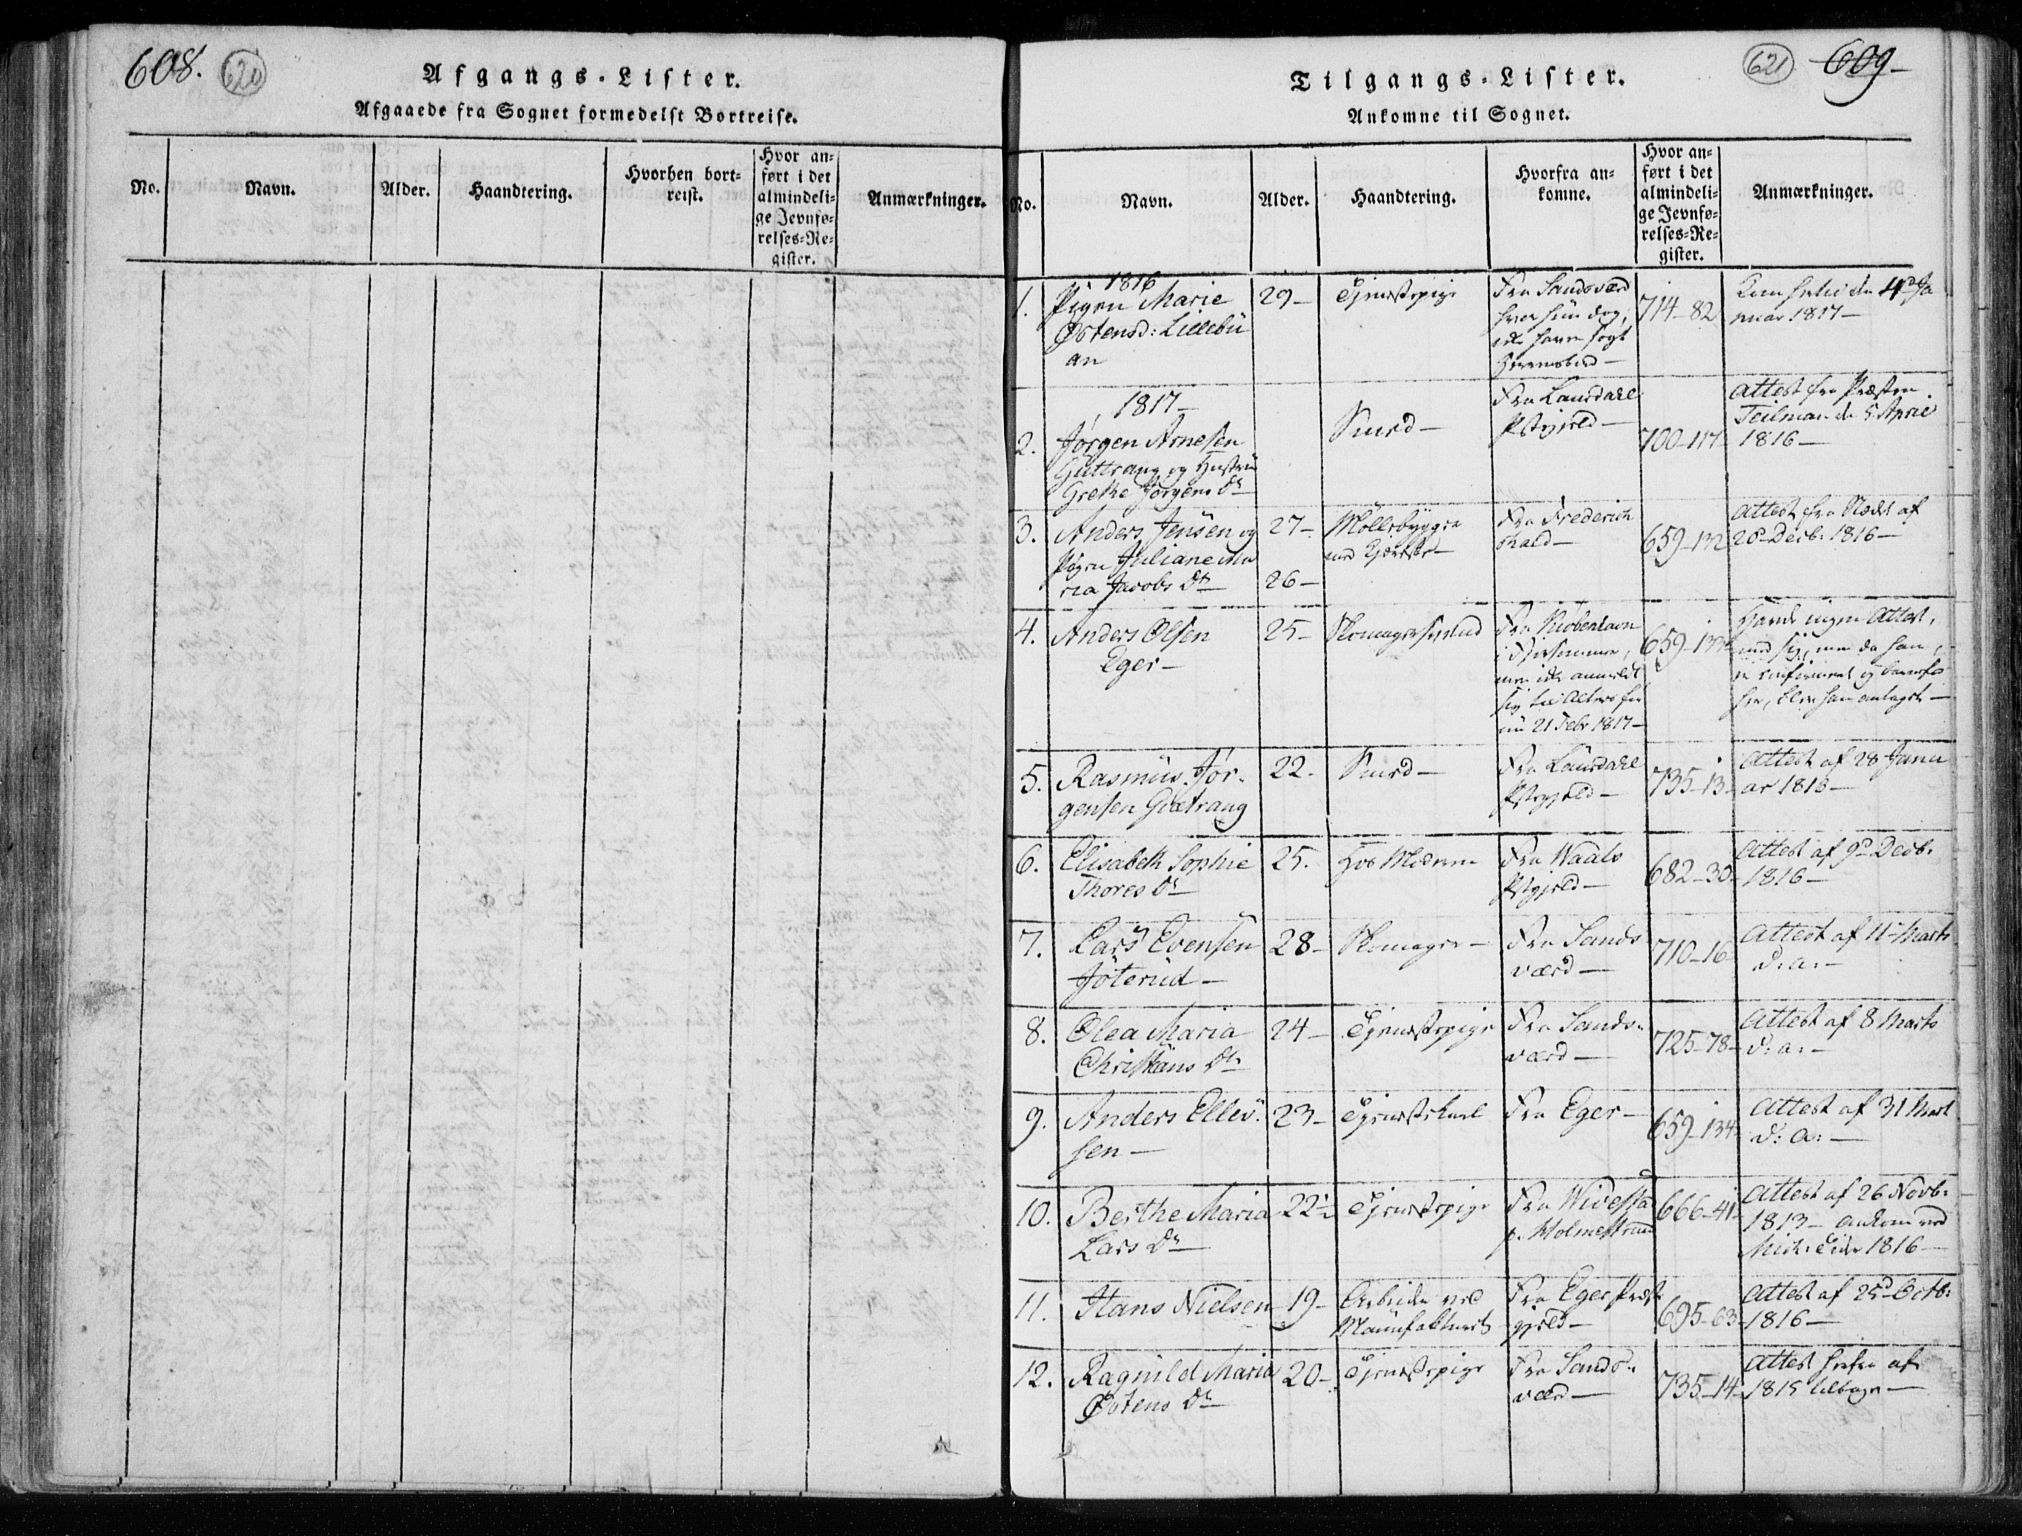 608. 620
Afgangs-Lister.
Afgaaede fra Sognet formedelst Bortreise.
No.
Navn.
Alder.
Haandtering.
Hvorhen bort-
reist.
Hvor an-
ført i det
almindeli-
ge Jevnfø-
relses-Re-
gister.
Anmærkninger.
621 609
Tilgangs-Lister.
Ankomne til Sognet.
No.
Navn.
Alder.
Haandtering.
Hvorfra an-
komne.
Hvor an-
ført i det
almindeli-
ge Jevnfø-
relses-Re-
gister.
Anmærkninger.
1816
1.
Pigen Marie
Østensd: Lillebu
an
29-
Tjenestepige
Fra Sandsværd
hvor hun dog,
714-82
nuar 1817-
1817-
2.
Jørgen Arnesen
Guttrang og Hustru
Grethe Jørgens Dr
Smed-
Fra Laurdahl
Pstgjeld-
700-117
Attest fra Præsten
Teilman de 5 April
1816-
3.
Anders Jensen og
Pigen Juliane Ma
ria Jacobs Dr
27-
26-
Møllebygger
Fra Frederich
shald-
659-132
Attest fra af
20 Decb. 1816-
4.
Anders Olsen
Eger-
25-
Skomagersvend
Fra Kiøbenhavn
nu 21 Febr 1817-
659-133
Havde ingen Attest,
med sig, men da han
5.
Rasmus Jør-
gensen Guttrang
22.
Smed-
Fra Laurdahl
Pstgjeld-
735-13-
Attest af 28 Janu
ar 1816-
6.
Elisabeth Sophie
Thores Dr
25.
Hos Moderen
Fra Waals
Pstgjeld-
682-30-
Attest af 9 Decb.
1816-
7.
Lars Evensen
Jøterud-
28-
Skomager-
Fra Sands
værd-
710-16
Attest af 11 Marts
d: a:-
8.
Olea Maria
Christians Dr
24-
Tjenestepige
Fra Sands-
værd-
725-78-
Attest af 8 Marts
d: a:-
9.
Anders Ellev-
sen-
23-
Tjenestekarl
Fra Eger-
659-134-
Attest af 31 Mart
d: a:-
10.
Berthe Maria
Lars Dr
22½
Tjenestepige
Fra
p. Holmestrand
666-41-
Attest af 26 Novb:
1813- ankom ved
Mich: Tider 1816-
11.
Hans Nielsen
19-
Arbeider ved
Manufakturet
Fra Eger Præst
gjeld-
695-63-
Attest af 25 Octb:
1816-
12.
Ragnild Maria
Østens Dr
20-
Tjenestepige
Fra Sands-
værd-
735-14-
Attest herfra af
1815 tilbage-